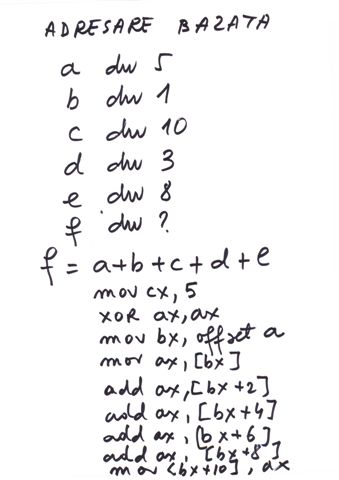 ADRESARE BAZATA
a dw 5
b dw 1
c dw 10
d dw 3
e dw 8
f dw ?
f = a+b+c+d+e
mov cx, 5
XOR ax, ax
mov bx, offset a
mov ax, [bx]
add ax, [bx+2]
add ax, [bx+4]
add ax, [bx+6]
add ax, [bx+8]
mov [bx+10], ax